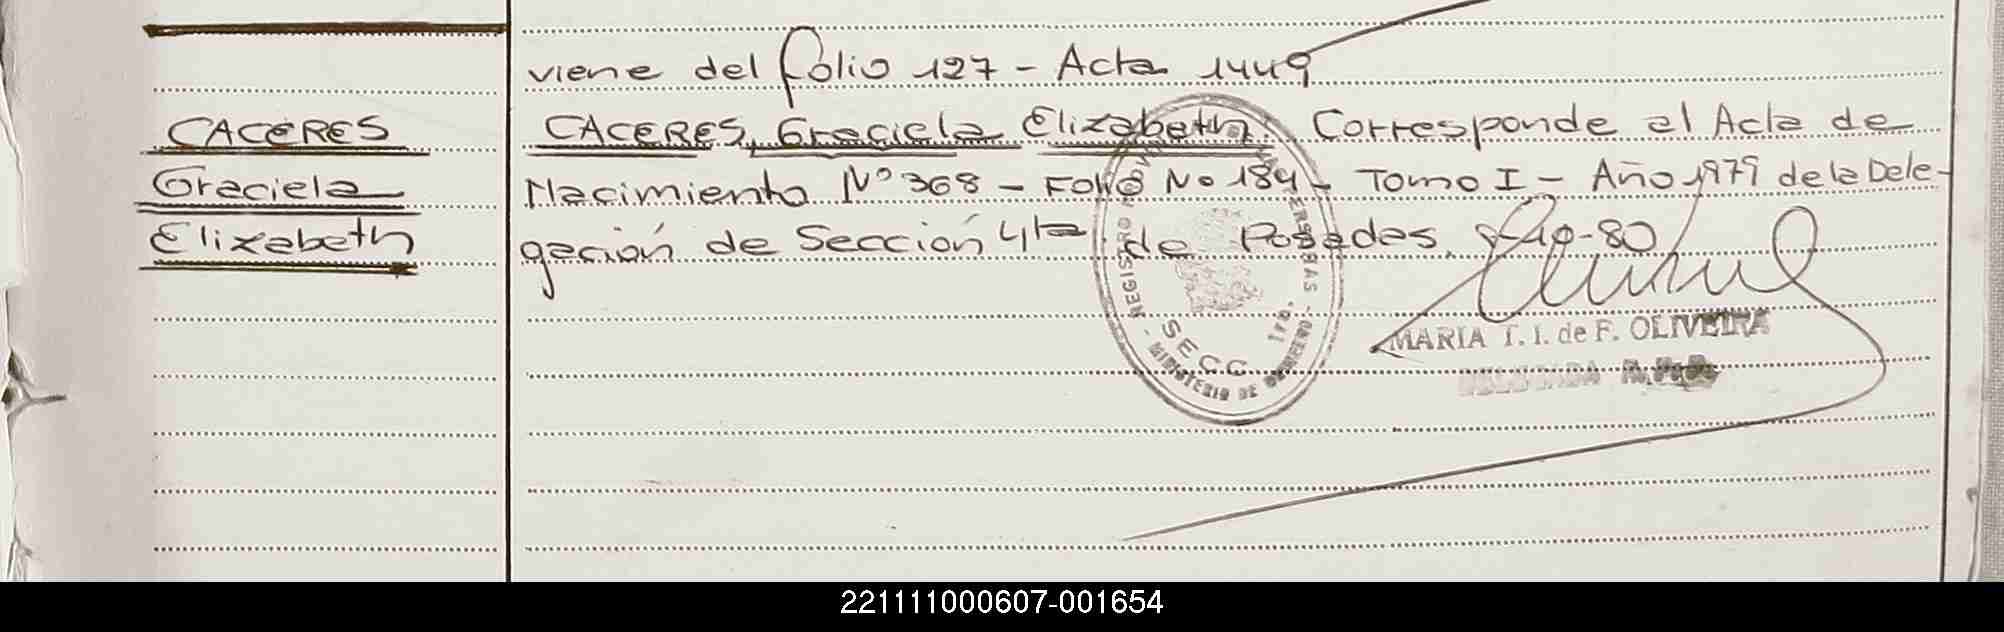 viene del folio 127 - Acta 1449
CACERES
Graciela
Elizabeth
CACERES, Graciela Elizabeth. Corresponde al Acta de
Nacimiento Nº 368 - Folio No 184 - Tomo I - Año 1979 de la Dele-
gación de Sección 4ta de Posadas, 8-10-80
REGISTRO
PERSONAS
SECC 1ra.
- MINISTERIO DE GOBIERNO -
MARIA T. I. de F. OLIVEIRA
DELEGADA
221111000607-001654